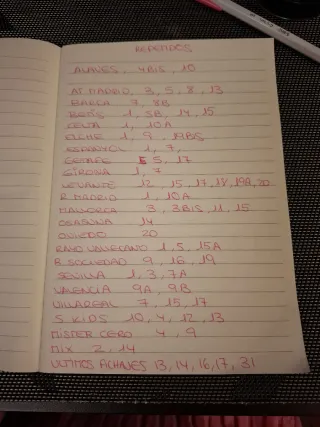 REPETIDOS
ALAVES, 4BIS, 10
AT MADRID, 3, 5, 8, 13
BARÇA 7, 8B
BETIS 1, 5B, 14, 15
CELTA 1, 10A
ELCHE 1, 9, 19BIS
ESPANYOL 1, 7,
GETAFE 5, 17
GIRONA 1, 7
LEVANTE 12, 15, 17, 18, 19A, 20
R MADRID 1, 10A
MALLORCA 3, 3BIS, 11, 15
OSASUNA 14
OVIEDO 20
RAYO VALLECANO 1, 5, 15A
R. SOCIEDAD 9, 16, 19
SEVILLA 1, 3, 7A
VALENCIA 9A, 9B
VILLAREAL 7, 15, 17
S. KIDS 10, 4, 12, 13
MISTER CERO 4, 9
MIX 2, 14
ULTIMOS FICHAJES 13, 14, 16, 17, 31